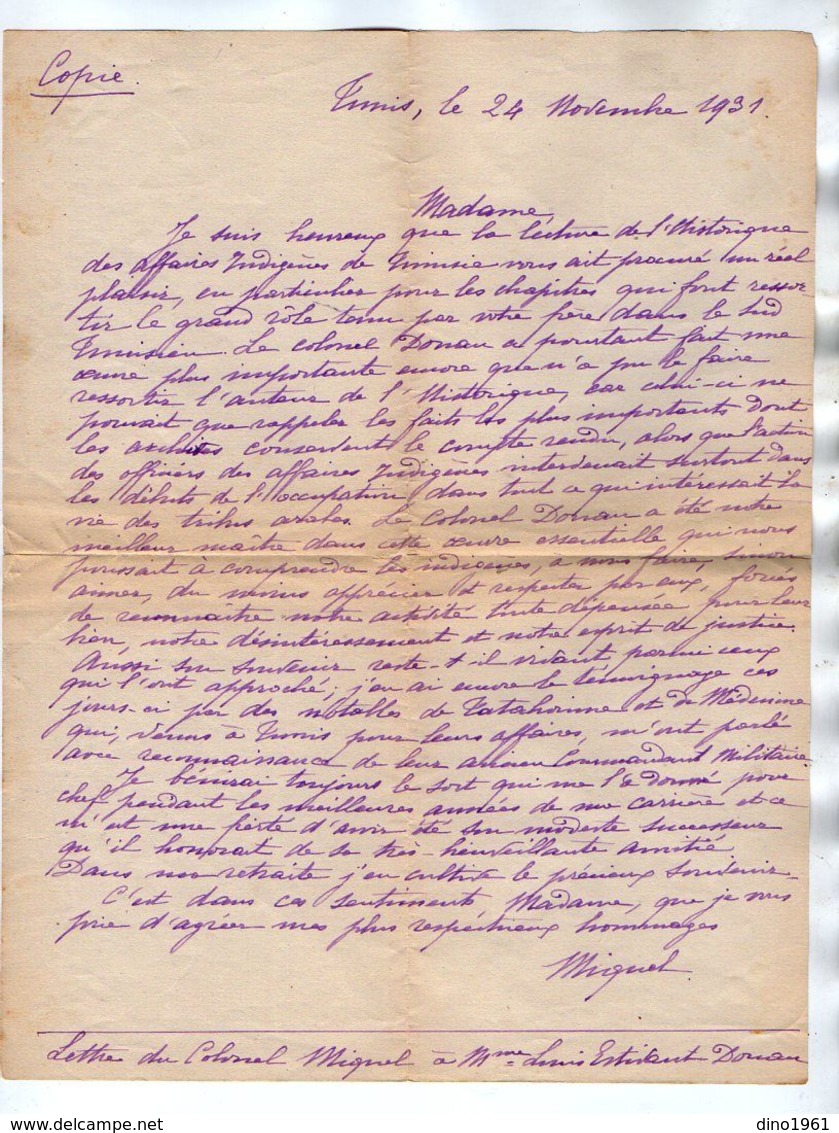 Copie.
Tunis, le 24 Novembre 1931.
Madame,
Je suis heureux que la lecture de l'Historique
des affaires Indigènes de Tunisie vous ait procuré un réel
plaisir, en particulier pour les chapitres qui font ressor-
tir le grand rôle tenu par votre père dans le Sud
Tunisien. Le colonel Donau a pourtant fait une
œuvre plus importante encore que n'a pu le faire
ressortir l'auteur de l'Historique, car celui-ci ne
pouvait que rappeler les faits les plus importants dont
les archives conservent le compte rendu, alors que l'action
des officiers des affaires Indigènes intervenait surtout dans
les débuts de l'occupation, dans tout ce qui intéressait la
vie des tribus arabes. Le Colonel Donau a été notre
meilleur maître dans cette œuvre essentielle qui nous
poussait à comprendre les indigènes, à nous faire, sinon
aimer, du moins apprécier et respecter par eux, forcés
de reconnaître notre activité toute dépensée pour leur
bien, notre désintéressement et notre esprit de justice.
Aussi son souvenir reste-t-il vivant parmi ceux
qui l'ont approché; j'en ai encore le témoignage ces
jours-ci par des notables de Tatahouine et de Médenine
qui, venus à Tunis pour leurs affaires, m'ont parlé
avec reconnaissance de leur ancien Commandant Militaire.
Je bénirai toujours le sort qui me l'a donné pour
chef pendant les meilleures années de ma carrière et ce
m'est une fierté d'avoir été son modeste successeur
qu'il honorait de sa très-bienveillante amitié
Dans ma retraite j'en cultive le précieux souvenir.
C'est dans ces sentiments, Madame, que je vous
prie d'agréer mes plus respectueux hommages
Miguel.
Lettre du Colonel Miguel à Mme Louis Estivant Donau
dino1961